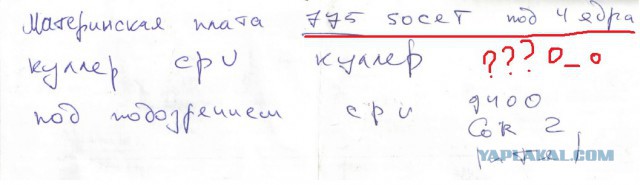 Материнская плата 775 socet под 4 ядра
куллер cpu куллер ??? O_o
под подозрением cpu 9400
Cor 2
YAPLAKAL.COM